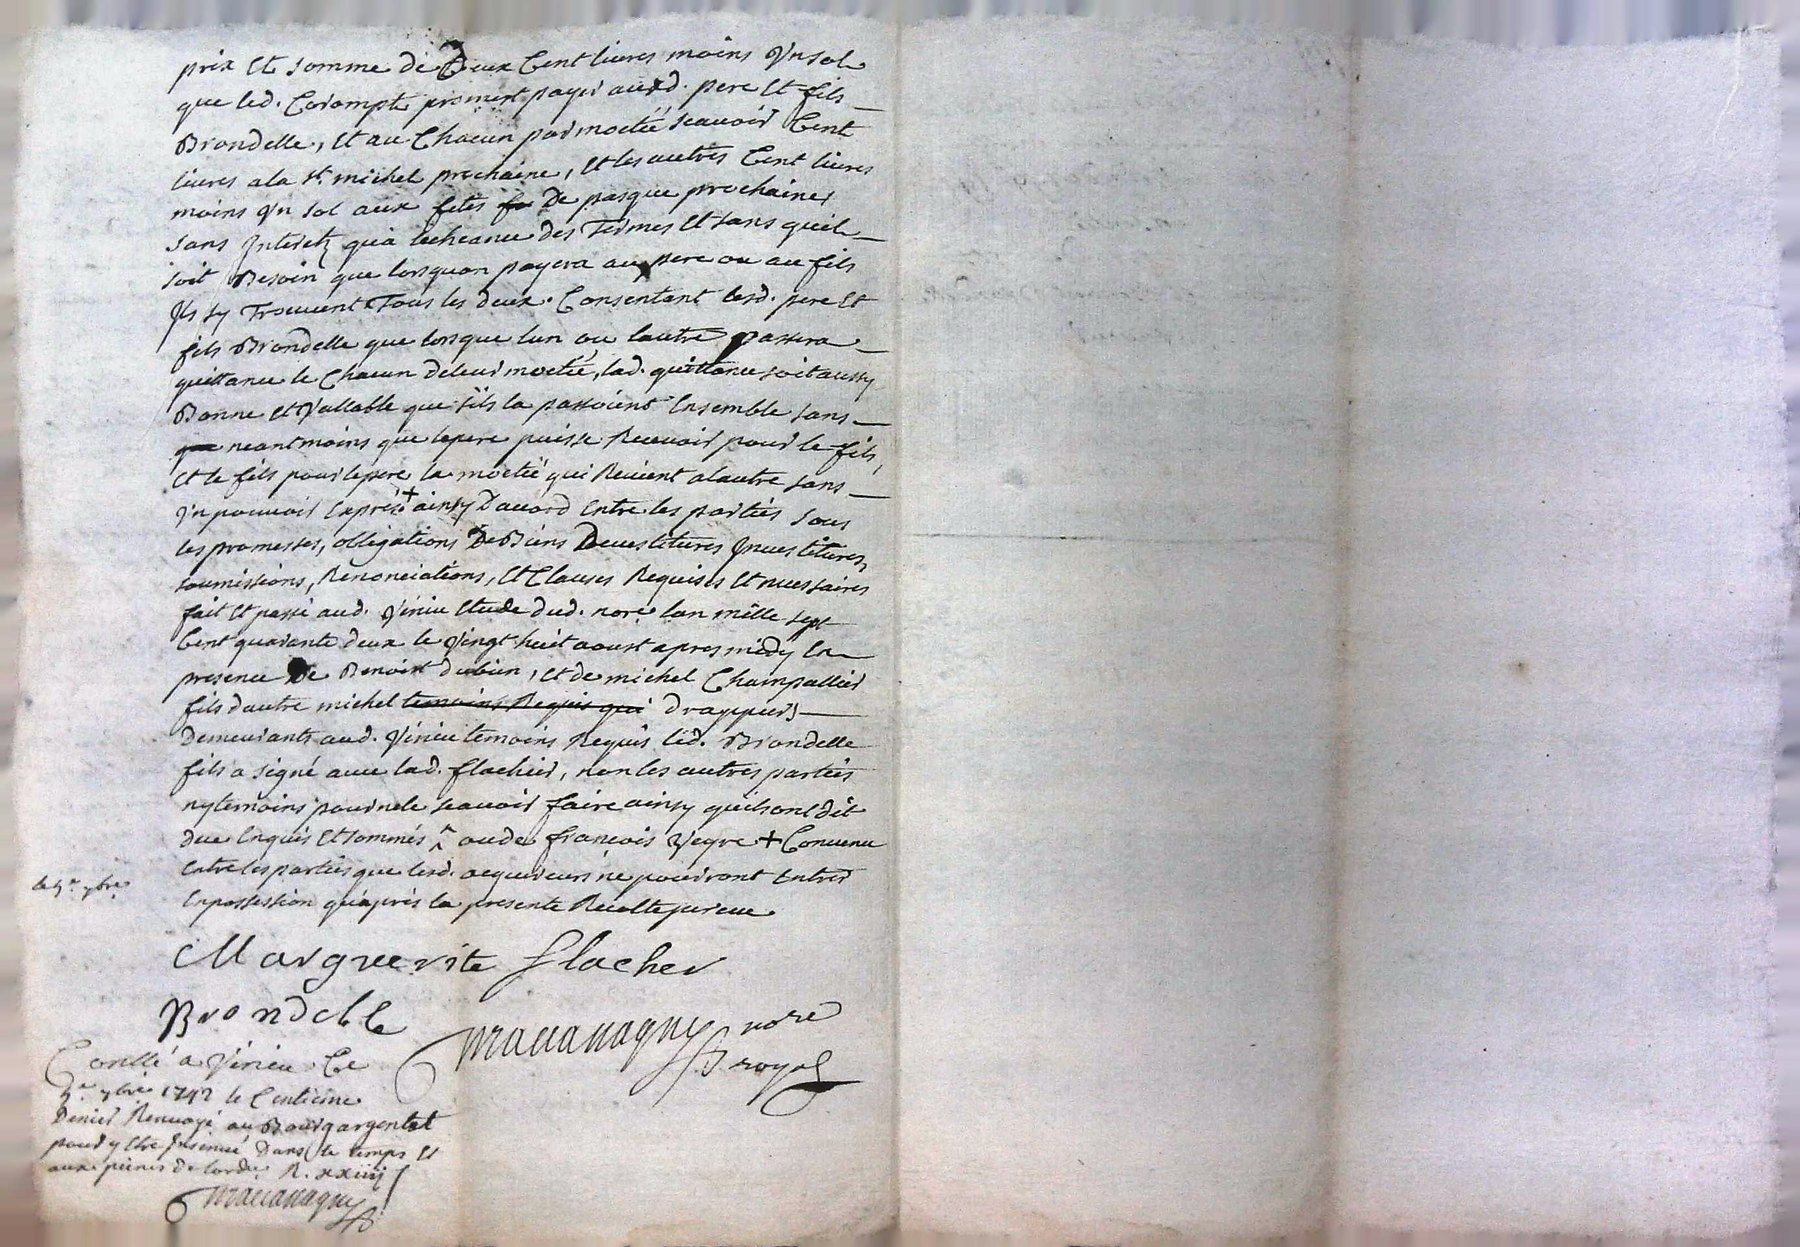 prix et somme de Deux Cent livres moins Un sol
que led. Corompt promert payer auxd. pere et fils
Brondelle, et au Chacun par moctié scauoir Cent
livres a la st. michel prochaine, et les autres Cent livres
moins Un sol aux fetes de pasque prochaines
sans Interetz qu'a lecheance des Termes et sans quil
soit Besoin que lorsquon payera au pere ou au fils
Ils sy Trouuent Tous les deux. Consentant lesd. pere et
fils Brondelle que lorsque lun ou lautre passera
quittance le Chacun de leur moctié, lad. quittance soit aussy
Bonne et Vallable que sils la passoient Ensemble sans
neantmoins que le pere puisse Receuoir pour le fils,
et le fils pour le pere la moctié qui Reuient a lautre sans
Un pouuoir Exprés + ainsy D'accord Entre les parties sous
les promesses, obligations De Biens Deuestitures Inuestitures,
soumissions, Renonciations, et Clauses Requises et necessaires
fait et passé aud. Virieu Etude dud. nore. lan mille sept
Cent quarante deux le Vingt huit aoust apres midy En
presence De Benoist dubien, et de michel Champallier
fils dautre michel temoins Requis qui drappiers
Demeurants aud. Virieu temoins Requis led. Brondelle
fils a signé auec lad. flachier, non les autres parties
ny temoins pour ne le scauoir faire ainsy quils ont dit
due Enquis et sommés ^ aude francois Veyre + Conuenu
Entre les parties que lesd. acquereurs ne pourront Entrer
En possession qu'aprés la presente Recolte perceue
le 9e. 7bre
Marguerite flacher
Brondelle
Maccanagny nore
royal
Conllé a Virieu Ce
9e. 7bre 1742 le Centieme
Denier Renuoyé au Bourgargental
pour y Etre Insinué Dans le temps et
aux peines de lordce. R. xxiiij s
Maccanagny